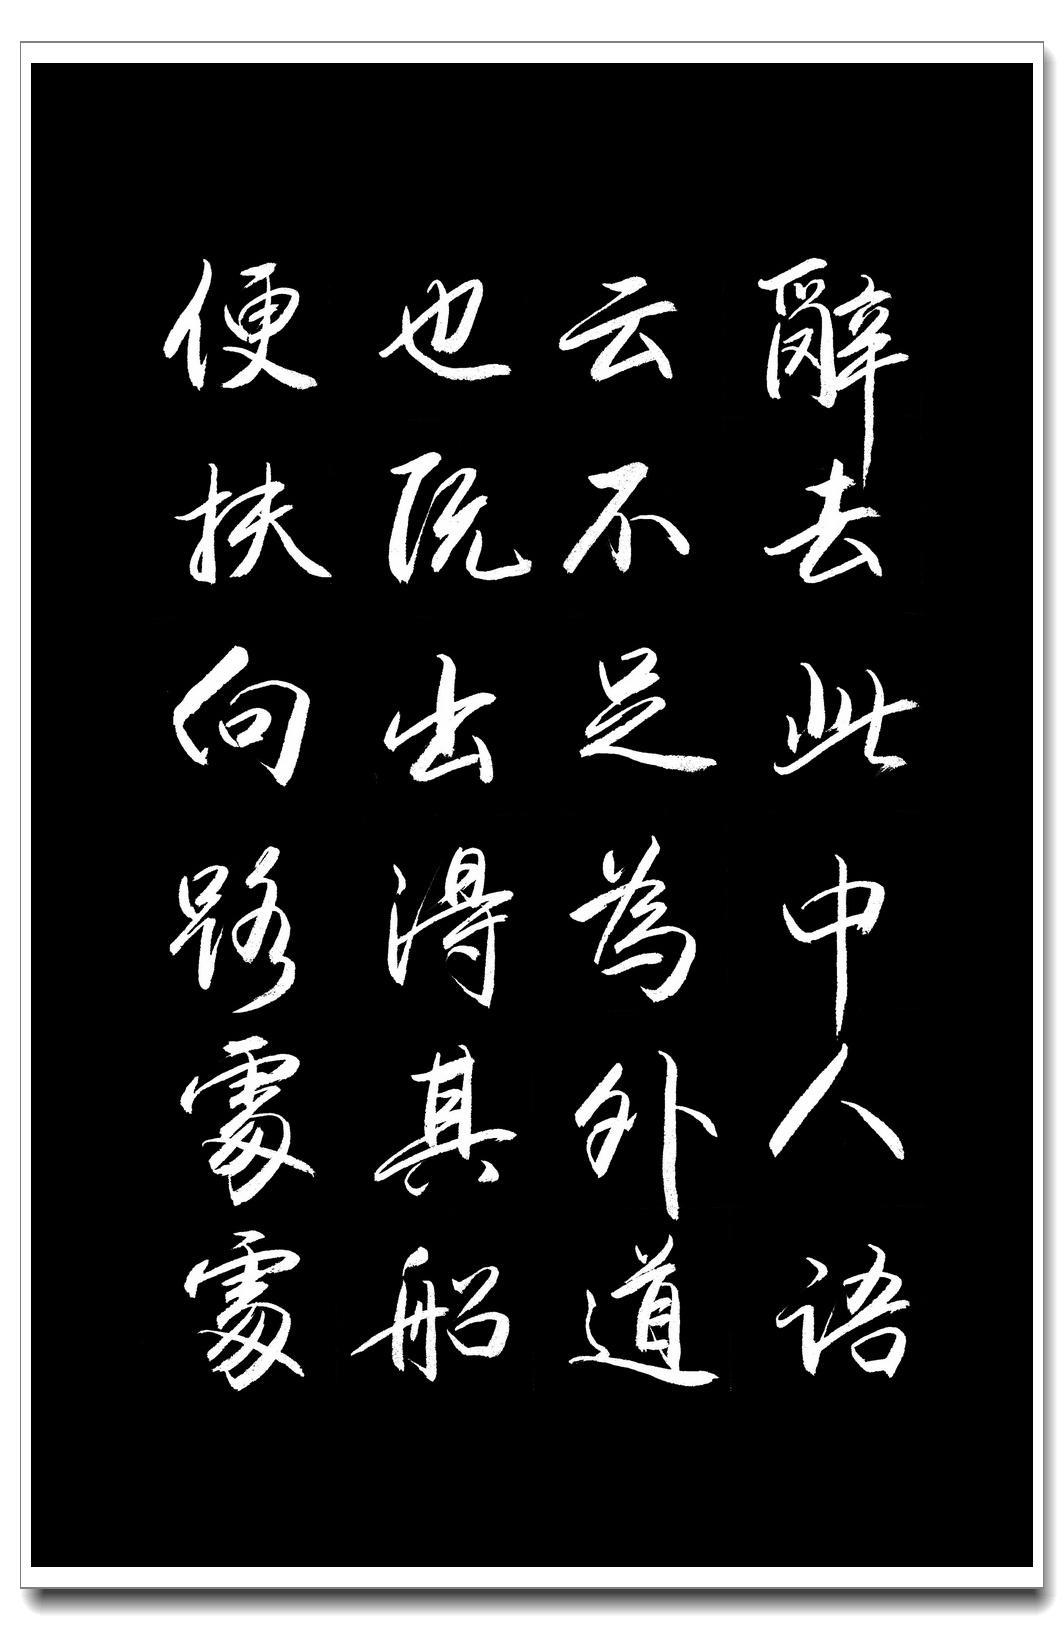 辭去此中人語
云不足為外道
也既出得其船
便扶向路處處